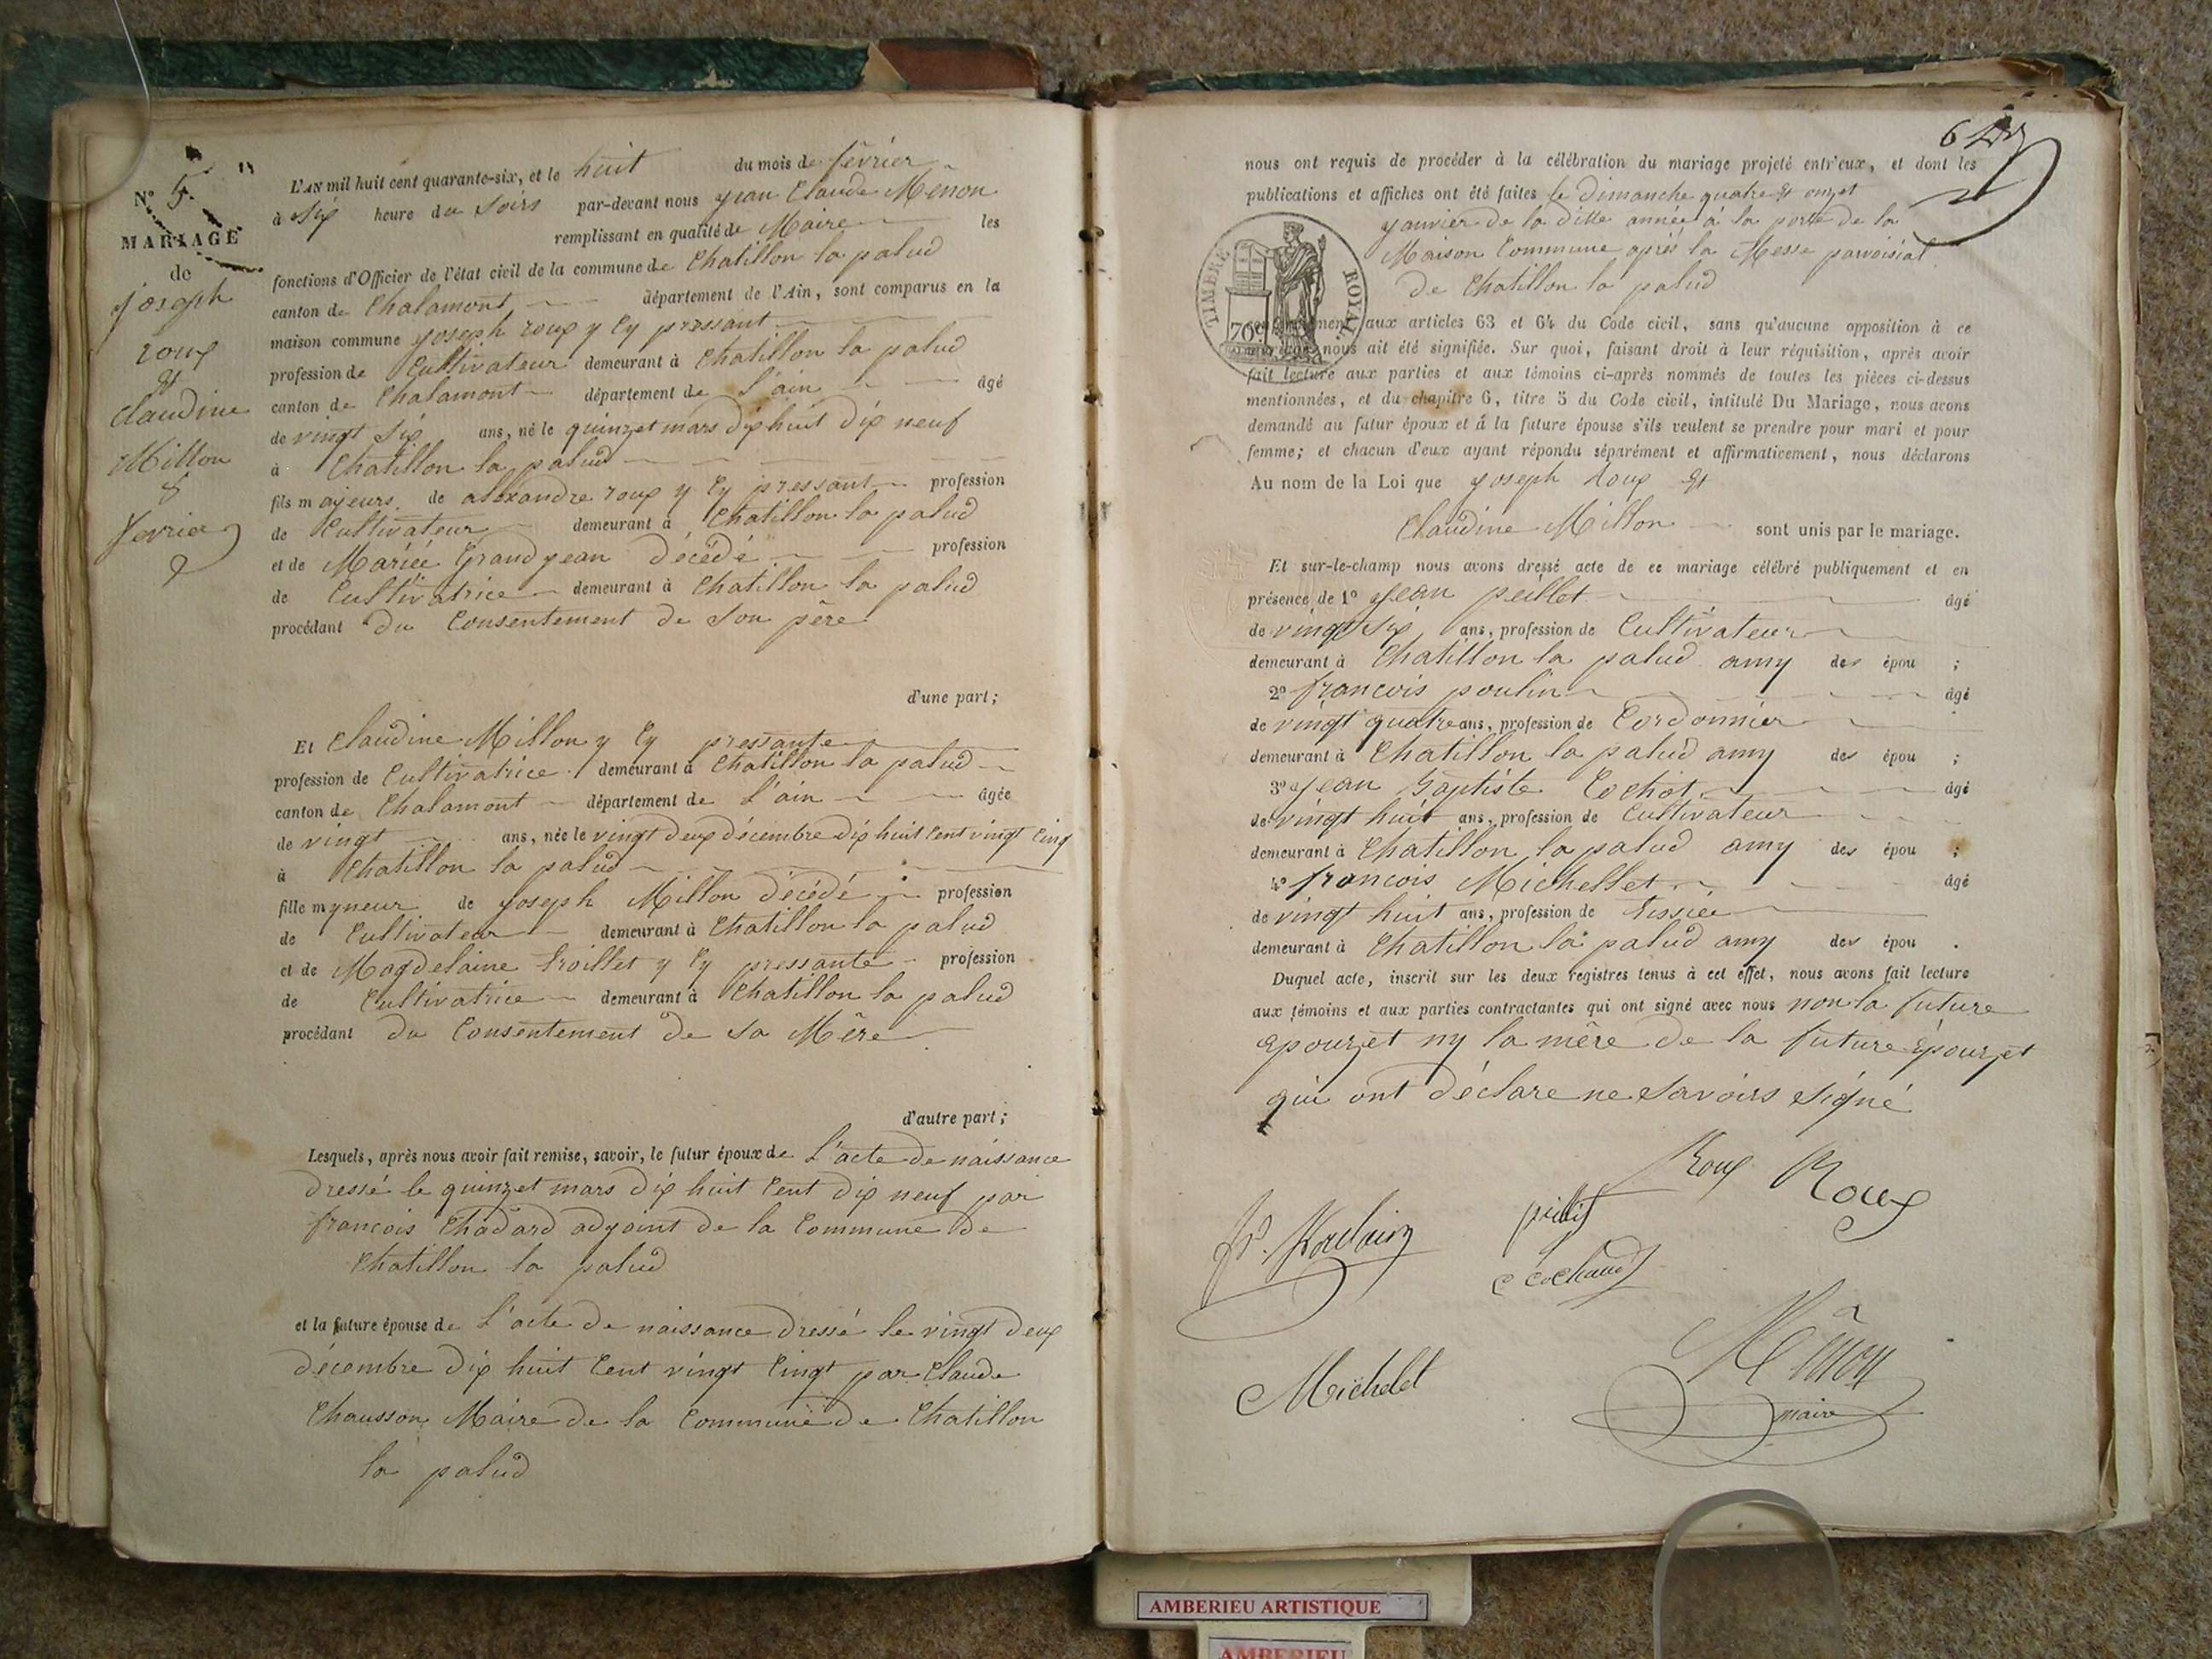 N° 5.
MARIAGE
de
joseph
roux
et
claudine
Millon
8
fevrier
L'AN mil huit cent quarante-six, et le huit du mois de février
à six heure du soirs par-devant nous jean Claude Menon
remplissant en qualité de Maire les
fonctions d'Officier de l'état civil de la commune de Chatillon la palud
canton de Chalamont département de l'Ain, sont comparus en la
maison commune joseph roux y Cy pressant
profession de Cultivateur demeurant à Chatillon la palud
canton de Chalamont département de l'ain âgé
de vingt six ans, né le quinzet mars dix huit dix neuf
à Chatillon la palud
fils majeurs de alexandre roux y Cy pressant profession
de Cultivateur demeurant à Chatillon la palud
et de Mariée Grand jean décédé profession
de Cultivatrice demeurant à Chatillon la palud
procédant du Consentement de son père
d'une part;
Et Claudine Millon y Cy pressante
profession de Cultivatrice demeurant à Chatillon la palud
canton de Chalamont département de l'ain âgée
de vingt ans, née le vingt deux décembre dix huit Cent vingt Cinq
à Chatillon la palud
fille myneur de joseph Millon décédé profession
de Cultivateur demeurant à Chatillon la palud
et de Magdelaine troillet y Cy pressante profession
de Cultivatrice demeurant à Chatillon la palud
procédant du Consentement de sa Mère
d'autre part;
Lesquels, après nous avoir fait remise, savoir, le futur époux de L'acte de naissance
dressé le quinzet mars dix huit Cent dix neuf par
françois Chadard adjoint de la Commune de
Chatillon la palud
et la future épouse de L'acte de naissance dressé le vingt deux
décembre dix huit Cent vingt Cinqt par Claude
Chausson Maire de la Commune de Chatillon
la palud
6
nous ont requis de procéder à la célébration du mariage projeté entr'eux, et dont les
publications et affiches ont été faites le dimanche quatre et onzet
janvier de la ditte année à la porte de la
Maison Commune après la Messe parroisial
de Chatillon la palud
TIMBRE ROYAL.
70c.
aux articles 63 et 64 du Code civil, sans qu'aucune opposition à ce
nous ait été signifiée. Sur quoi, faisant droit à leur réquisition, après avoir
fait lecture aux parties et aux témoins ci-après nommés de toutes les pièces ci-dessus
mentionnées, et du chapitre 6, titre 5 du Code civil, intitulé Du Mariage, nous avons
demandé au futur époux et à la future épouse s'ils veulent se prendre pour mari et pour
femme; et chacun d'eux ayant répondu séparément et affirmativement, nous déclarons
Au nom de la Loi que joseph roux et
Claudine Millon sont unis par le mariage.
Et sur-le-champ nous avons dressé acte de ce mariage célébré publiquement et en
présence de 1° jean peillet âgé
de vingt six ans, profession de Cultivateur
demeurant à Chatillon la palud amy des épou ;
2° françois poulin âgé
de vingt quatre ans, profession de Cordonnier
demeurant à Chatillon la palud amy des épou ;
3° jean Baptiste Cochot âgé
de vingt huit ans, profession de Cultivateur
demeurant à Chatillon la palud amy des épou ;
4° françois Michellet âgé
de vingt huit ans, profession de tissier
demeurant à Chatillon la palud amy des épou .
Duquel acte, inscrit sur les deux registres tenus à cet effet, nous avons fait lecture
aux témoins et aux parties contractantes qui ont signé avec nous non la future
epouzet ny la mère de la future épouzet
qui ont déclare ne savoirs signé
Roux Roux
peillet
Cochaud
Michelet
Menon
maire
AMBERIEU ARTISTIQUE
AMBERIEU